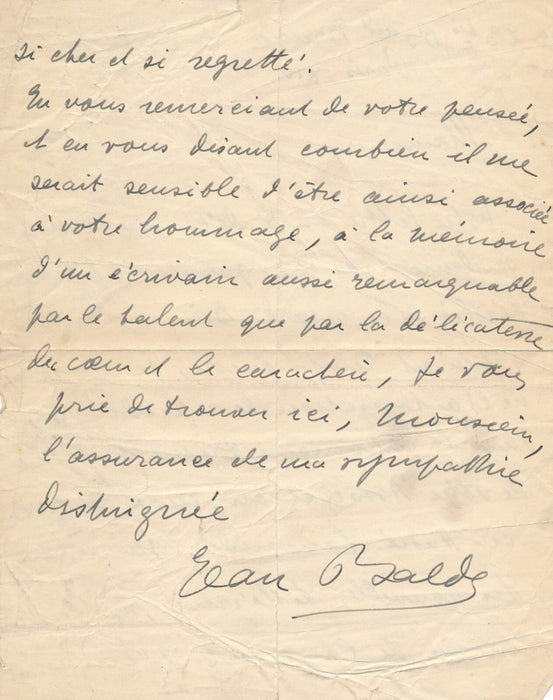 si cher et si regretté.
En vous remerciant de votre pensée,
et en vous disant combien il me
serait sensible d'être ainsi associée
à votre hommage, à la mémoire
d'un écrivain aussi remarquable
par le talent que par la délicatesse
du cœur et le caractère, je vous
prie de trouver ici, Monsieur,
l'assurance de ma sympathie
distinguée
Jean Balde